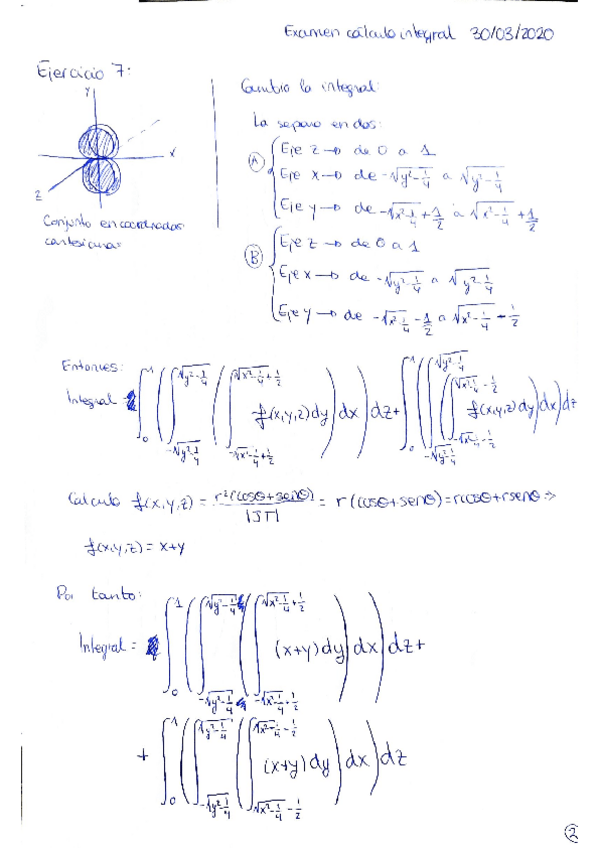 Examen cálculo integral 30/03/2020
Ejercicio 7:
Y
X
Z
Conjunto en coordenadas
cartesianas
Cambio la integral:
La separo en dos:
A
Eje z → de 0 a 1
Eje x → de -√(y²-1/4) a √(y²-1/4)
Eje y → de -√(x²-1/4)+1/2 a √(x²-1/4)+1/2
B
Eje z → de 0 a 1
Eje x → de -√(y²-1/4) a √(y²-1/4)
Eje y → de -√(x²-1/4)-1/2 a √(x²-1/4)-1/2
Entonces:
Integral = ∫₀¹(∫_{-√(y²-1/4)}^{√(y²-1/4)}(∫_{-√(x²-1/4)+1/2}^{√(x²-1/4)+1/2} f(x,y,z)dy)dx)dz + ∫₀¹(∫_{-√(y²-1/4)}^{√(y²-1/4)}(∫_{-√(x²-1/4)-1/2}^{√(x²-1/4)-1/2} f(x,y,z)dy)dx)dz
Calculo f(x,y,z) = r²(cosθ+senθ)/|JT| = r(cosθ+senθ)=rcosθ+rsenθ ⇒
f(x,y,z) = x+y
Por tanto:
Integral = ∫₀¹(∫_{-√(y²-1/4)}^{√(y²-1/4)}(∫_{-√(x²-1/4)+1/2}^{√(x²-1/4)+1/2} (x+y)dy)dx)dz+
+ ∫₀¹(∫_{-√(y²-1/4)}^{√(y²-1/4)}(∫_{-√(x²-1/4)-1/2}^{√(x²-1/4)-1/2} (x+y)dy)dx)dz
2